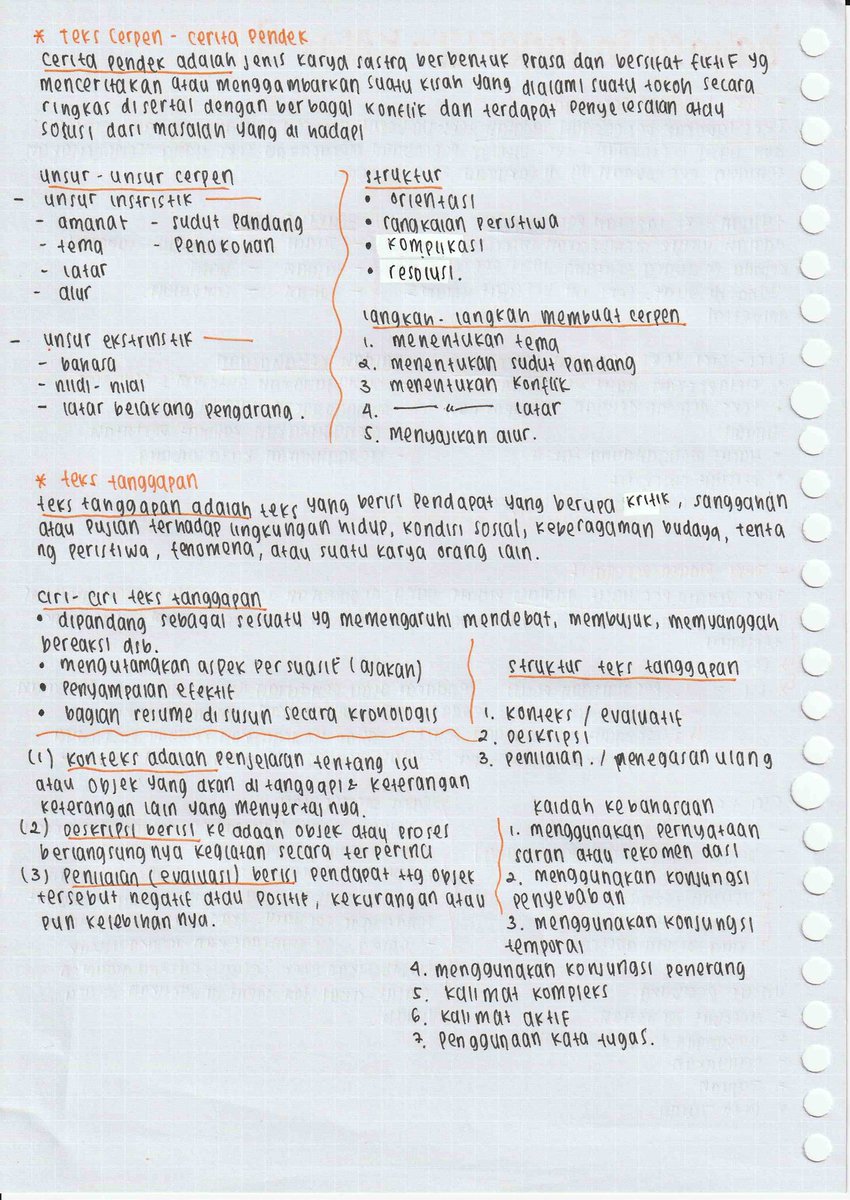 * Teks Cerpen - cerita Pendek
Cerita pendek adalah jenis karya sastra berbentuk prasa dan bersifat fiktif yg
menceritakan atau menggambarkan suatu kisah yang dialami suatu tokoh secara
ringkas disertai dengan berbagai konflik dan terdapat penyelesaian atau
solusi dari masalah yang di hadapi
unsur - unsur cerpen
- unsur instristik
- amanat - sudut pandang
- tema - Penokohan
- latar
- alur
- unsur ekstrinstik
- bahasa
- nilai - nilai
- latar belakang pengarang.
Struktur
• orientasi
• rangkaian peristiwa
• komplikasi
• resolusi.
langkah - langkah membuat cerpen
1. menentukan tema
2. menentukan sudut pandang
3 menentukan konflik
4. —— " —— latar
5. menyajikan alur.
* teks tanggapan
teks tanggapan adalah teks yang berisi pendapat yang berupa kritik, sanggahan
atau pujian terhadap lingkungan hidup, kondisi sosial, keberagaman budaya, tenta
ng peristiwa, fenomena, atau suatu karya orang lain.
ciri - ciri teks tanggapan
• dipandang sebagai sesuatu yg memengaruhi mendebat, membujuk, memyanggah
bereaksi dsb.
• mengutamakan aspek persuasif (ajakan)
• penyampaian efektif
• bagian resume disusun secara kronologis
struktur teks tanggapan
1. konteks / evaluatif
2. Deskripsi
3. penilaian. / penegasan ulang
(1) konteks adalah penjelasan tentang isu
atau objek yang akan di tanggapi & keterangan
keterangan lain yang menyertai nya.
(2) Deskripsi berisi ke adaan objek atau proses
berlangsung nya kegiatan secara terperinci
(3) Penilaian (evaluasi) berisi pendapat ttg objek
tersebut negatif atau positif, kekurangan atau
pun kelebihan nya.
kaidah kebahasaan
1. menggunakan pernyataan
saran atau rekomen dasi
2. menggunakan konjungsi
penyebaban
3. menggunakan konjungsi
temporal
4. menggunakan konjungsi penerang
5. kalimat kompleks
6. kalimat aktif
7. Penggunaan kata tugas.